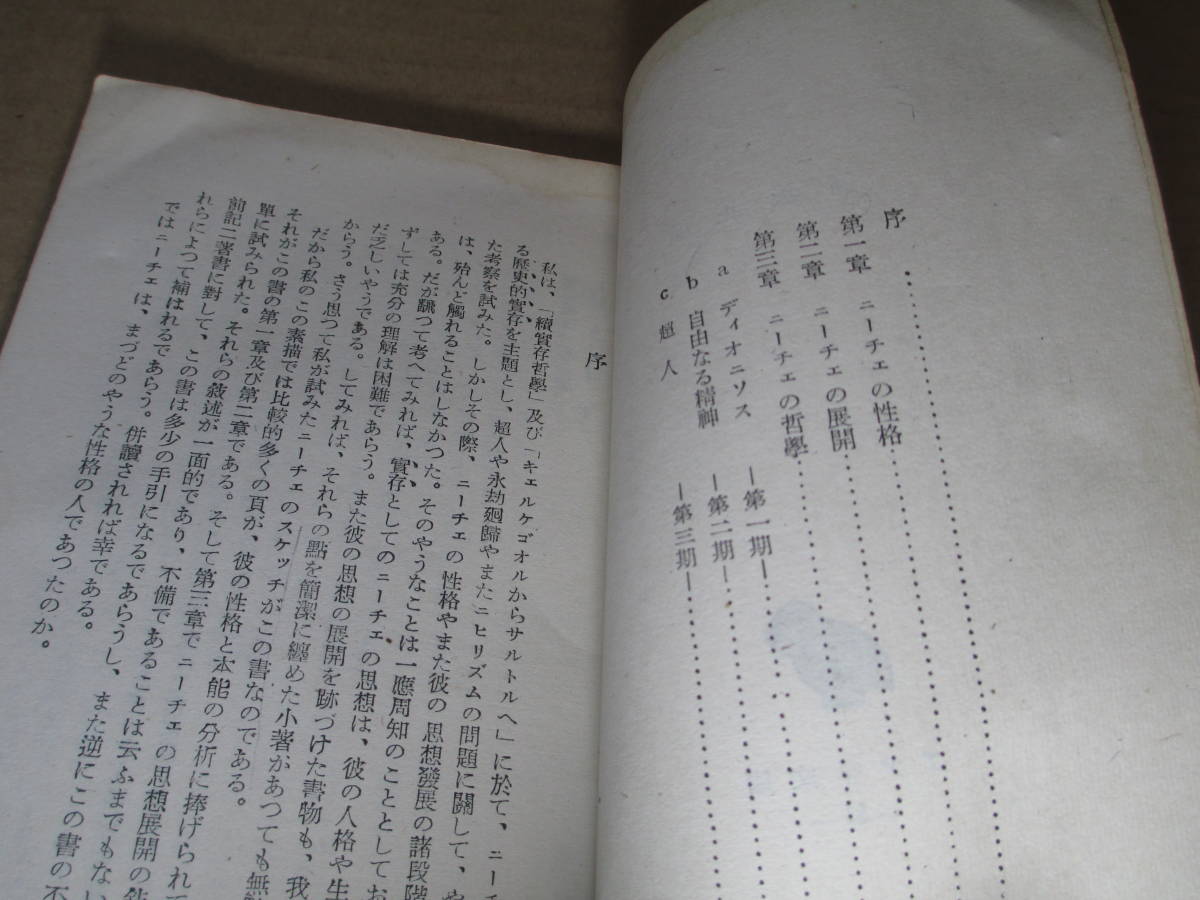 序
第一章 ニーチェの性格
第二章 ニーチェの展開
第三章 ニーチェの哲學
a ディオニソス ―第一期―
b 自由なる精神 ―第二期―
c 超人 ―第三期―
序
私は、「續實存哲學」及び「キェルケゴオルからサルトルへ」に於て、ニーチ
る歴史的實存を主題とし、超人や永劫廻歸やまたニヒリズムの問題に關して、や
た考察を試みた。しかしその際、ニーチェの性格やまた彼の思想發展の諸段階
は、殆んど觸れることはしなかつた。そのやうなことは一應周知のこととしてお
ある。だが飜つて考へてみれば、實存としてのニーチェの思想は、彼の人格や生
ずしては充分の理解は困難であらう。また彼の思想の展開を跡づけた書物も、我
だ乏しいやうである。してみれば、それらの點を簡潔に纏めた小著があつても無
からう。さう思つて私が試みたニーチェのスケッチがこの書なのである。
だから私のこの素描では比較的多くの頁が、彼の性格と本能の分析に捧げられて
それがこの書の第一章及び第二章である。そして第三章でニーチェの思想展開の敍
單に試みられた。それらの敍述が一面的であり、不備であることは云ふまでもない
前記二著書に對して、この書は多少の手引になるであらうし、また逆にこの書の不
れらによつて補はれるであらう。併讀されれば幸である。
ではニーチェは、まづどのやうな性格の人であつたのか。